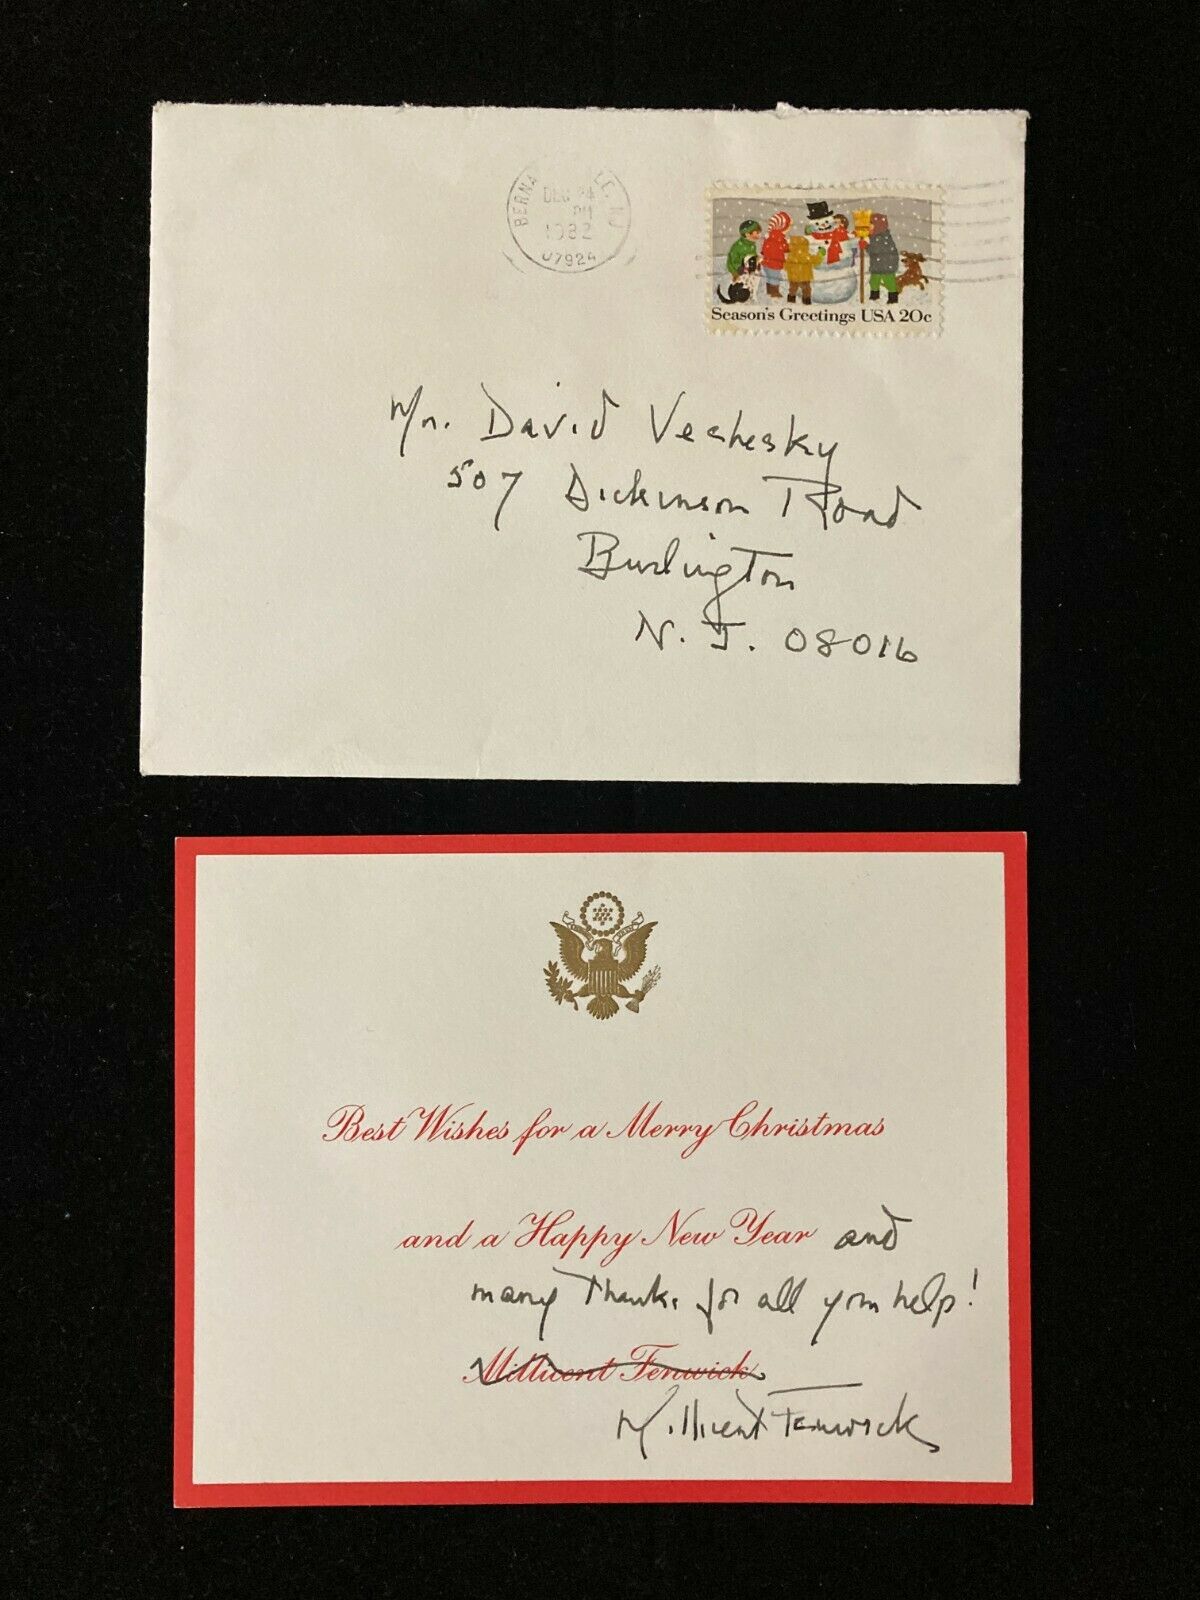 DEC 24
PM
1982
07924
Season's Greetings USA 20c
Mr. David Veshesky
507 Dickinson Road
Burlington
N. J. 08016
Best Wishes for a Merry Christmas
and a Happy New Year and
many Thanks for all your help!
Millicent Fenwick
Millicent Fenwick